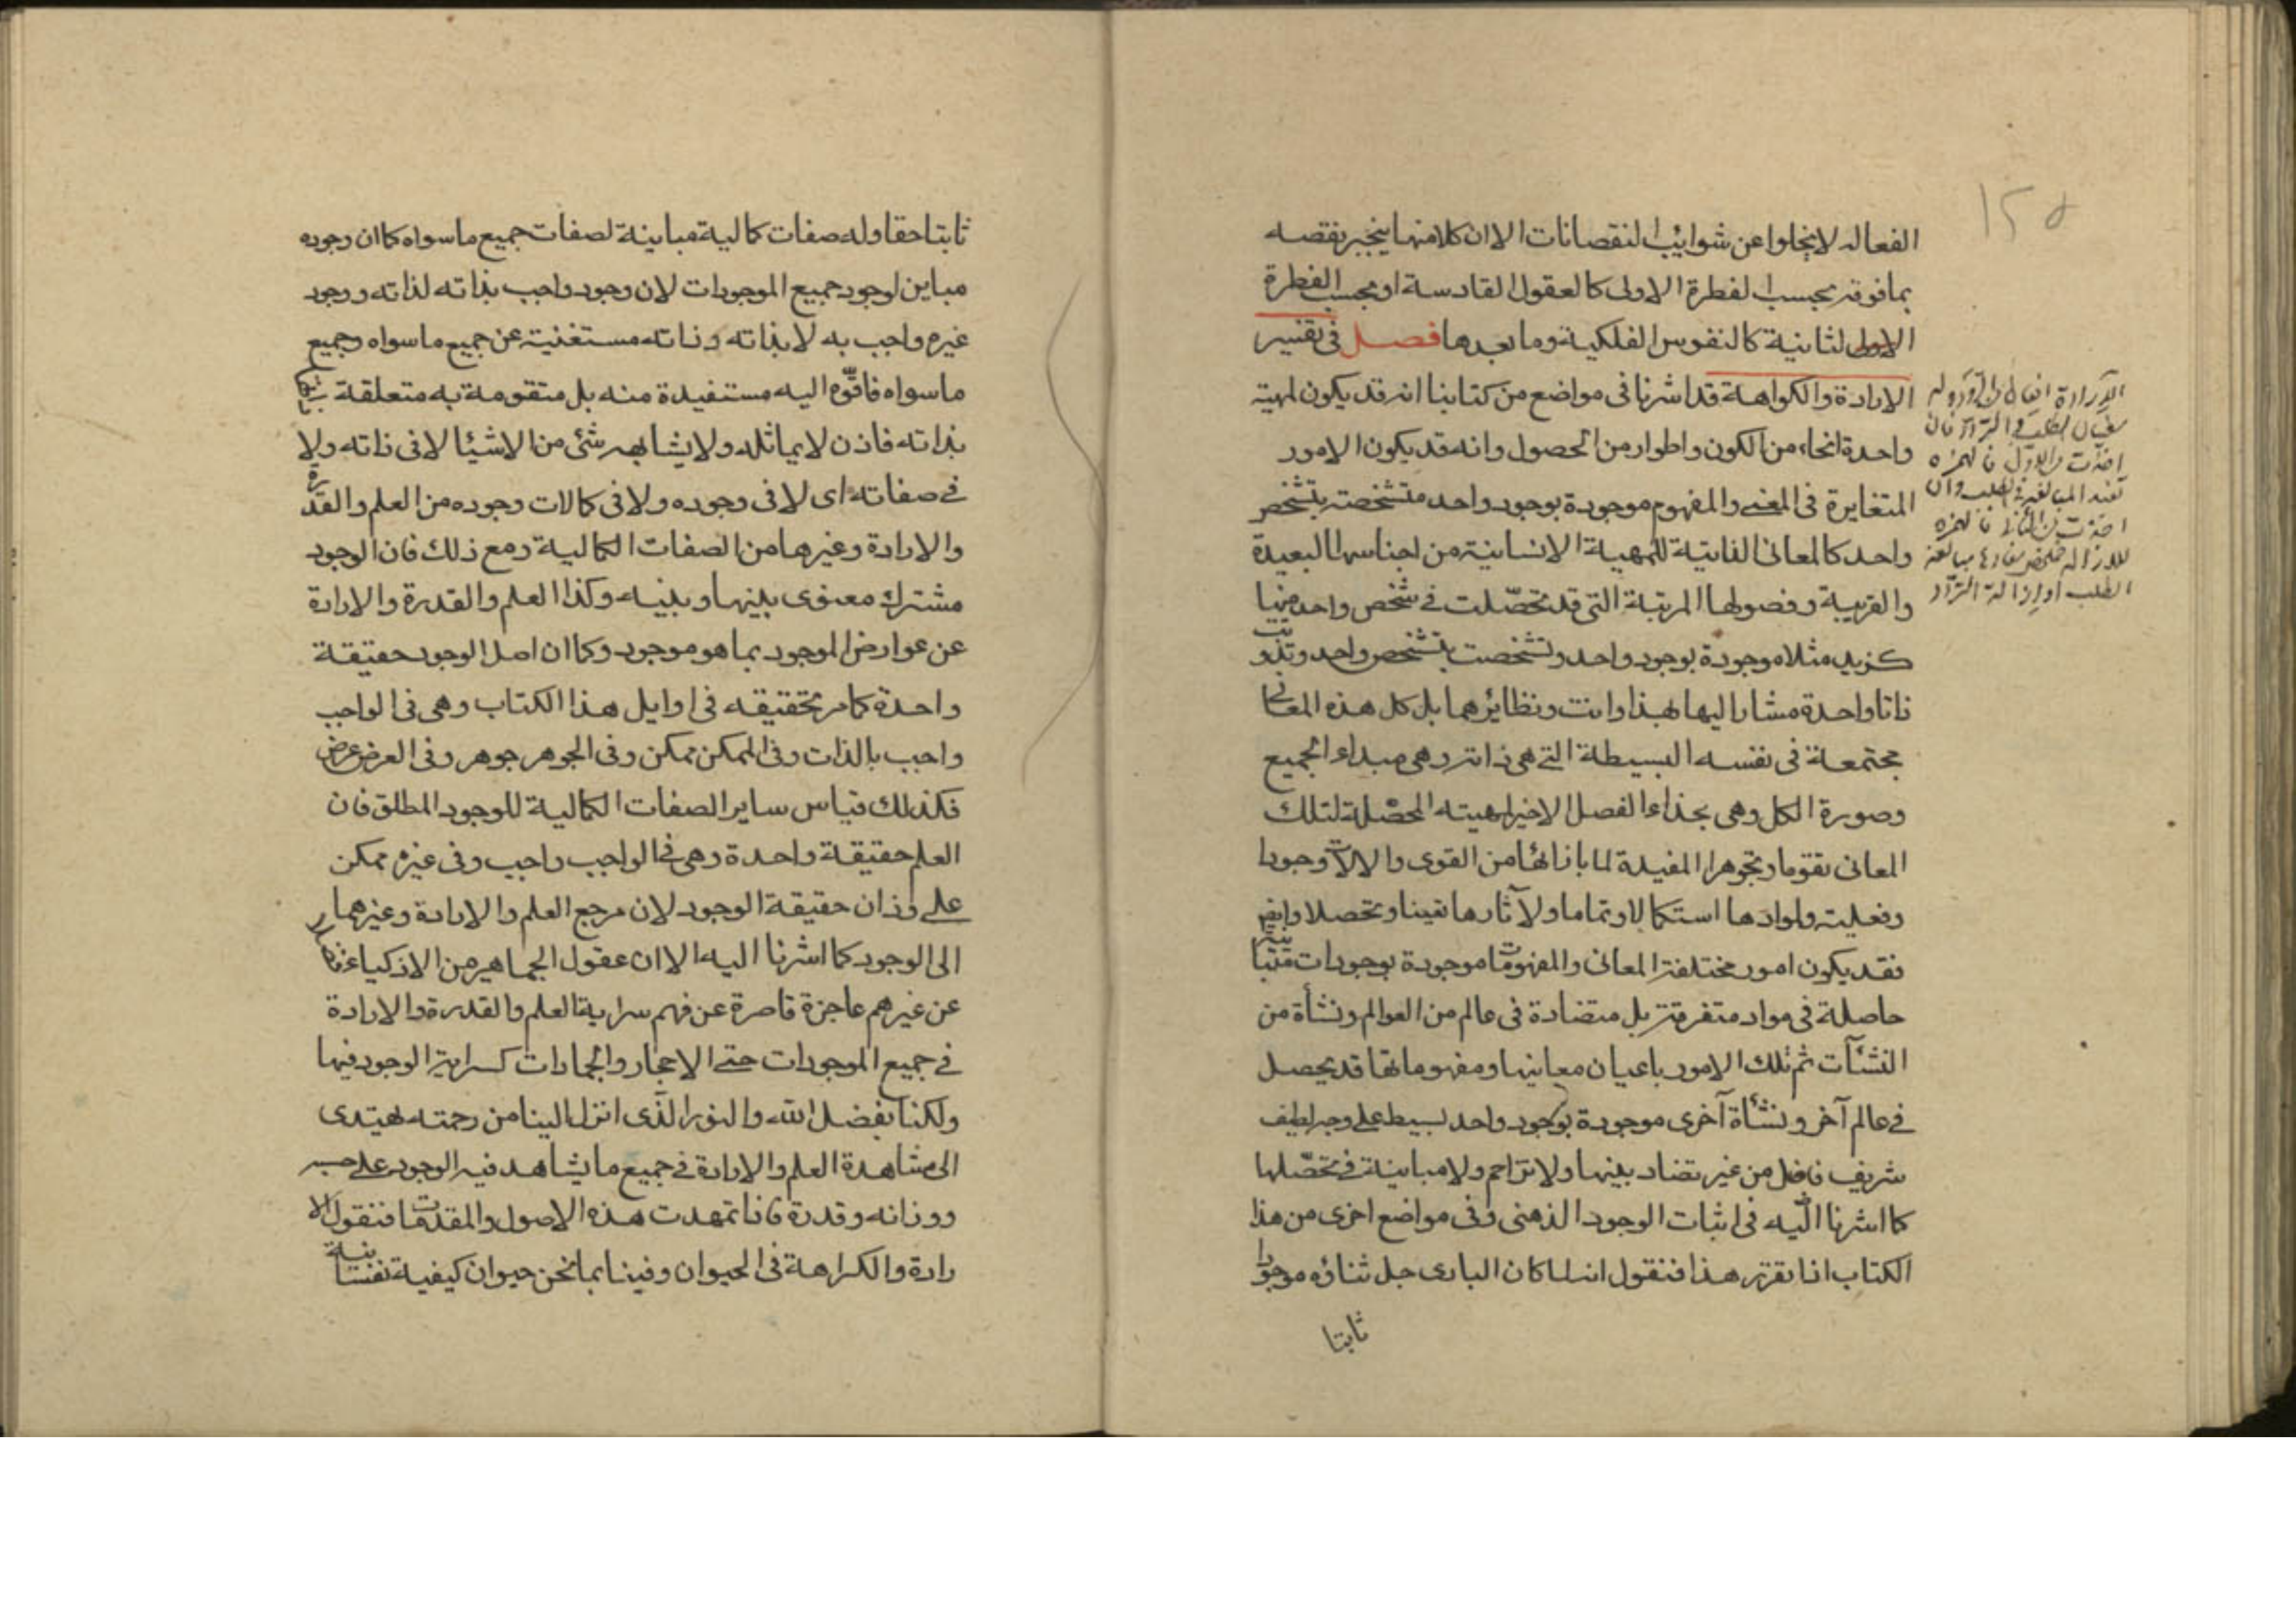 ١٢٥
الفعاله لا يخلوا عن شوائب النقصانات الا ان كلا منها ينجبر نقصه
بما فوقه بحسب الفطرة الاولى كالعقول القادسة او بحسب الفطرة
الثانية كالنفوس الفلكية وما بعدها فصل فى تفسير
الارادة والكراهة قد اشرنا فى مواضع من كتابنا انه قد يكون لمهية
واحدة انحاء من الكون واطوار من الحصول وانه قد يكون الامور
المتغايرة فى المعنى والمفهوم موجودة بوجود واحد متشخصة بتشخص
واحد كالمعانى الذاتية للمهية الانسانية من اجناسها البعيدة
والقريبة وفصولها المرتبة التى قد تحصّلت فى شخص واحد منها
كزيد مثلا موجودة بوجود واحد وتشخصت بتشخص واحد وتذوتت
ذاتا واحدة مشارا اليها بهذا وانت ونظائرهما بل كل هذه المعانى
مجتمعة فى نفسه البسيطة التى هى ذاته وهى مبداء الجميع
وصورة الكل وهى بحذاء الفصل الاخير لمهيته المحصّلة لتلك
المعانى تقوما وتجوهرا المفيدة لما بازائها من القوى والالات وجودا
وفعلية ولموادها استكمالا وتماما ولآثارها تعينا وتحصلا وايضا
فقد يكون امور مختلفة المعانى والمفهومات موجودة بوجودات متباينة
حاصلة فى مواد متفرقة بل متضادة فى عالم من العوالم ونشأة من
النشآت ثم تلك الامور باعيان معانيها ومفهوماتها قد يحصل
فى عالم آخر ونشأة آخرى موجودة بوجود واحد بسيط على وجه لطيف
شريف فاضل من غير تضاد بينها ولا تزاحم ولا مباينة فى تحصّلها
كما اشرنا اليه فى اثبات الوجود الذهنى وفى مواضع اخرى من هذا
الكتاب اذا تقرر هذا فنقول انه لما كان البارى جل ثناؤه موجودا
ثابتا
ثابتا حقا وله صفات كمالية مباينة لصفات جميع ما سواه كما ان وجوده
مباين لوجود جميع الموجودات لان وجوده واجب بذاته لذاته ووجود
غيره واجب به لا بذاته وذاته مستغنية عن جميع ما سواه وجميع
ما سواه فاقرة اليه مستفيدة منه بل متقومة به متعلقة
بذاته فاذن لا يماثله ولا يشابهه شئ من الاشيا لا فى ذاته ولا
فى صفاته اى لا فى وجوده ولا فى كمالات وجوده من العلم والقدرة
والارادة وغيرها من الصفات الكمالية ومع ذلك فان الوجود
مشترك معنوى بينها وبينه وكذا العلم والقدرة والارادة
عن عوارض الموجود بما هو موجود وكما ان اصل الوجود حقيقة
واحدة كما مر تحقيقه فى اوايل هذا الكتاب وهى فى الواجب
واجب بالذات وفى الممكن ممكن وفى الجوهر جوهر وفى العرض عرض
فكذلك قياس ساير الصفات الكمالية للوجود المطلق فان
العلم حقيقة واحدة وهى فى الواجب واجب وفى غيره ممكن
على وزان حقيقة الوجود لان مرجع العلم والارادة وغيرهما
الى الوجود كما اشرنا اليه الا ان عقول الجماهير من الاذكياء
عن غيرهم عاجزة قاصرة عن فهم سراية العلم والقدرة والارادة
فى جميع الموجودات حتى الاحجار والجمادات كسراية الوجود فيها
ولكنا بفضل الله والنور الذى انزل الينا من رحمته نهتدى
الى مشاهدة العلم والارادة فى جميع ما يشاهد فيه الوجود على حسبه
ووزانه وقدره فاذا تمهدت هذه الاصول والمقدمات فنقول الا
رادة والكراهة فى الحيوان وفينا بما نحن حيوان كيفية نفسانية